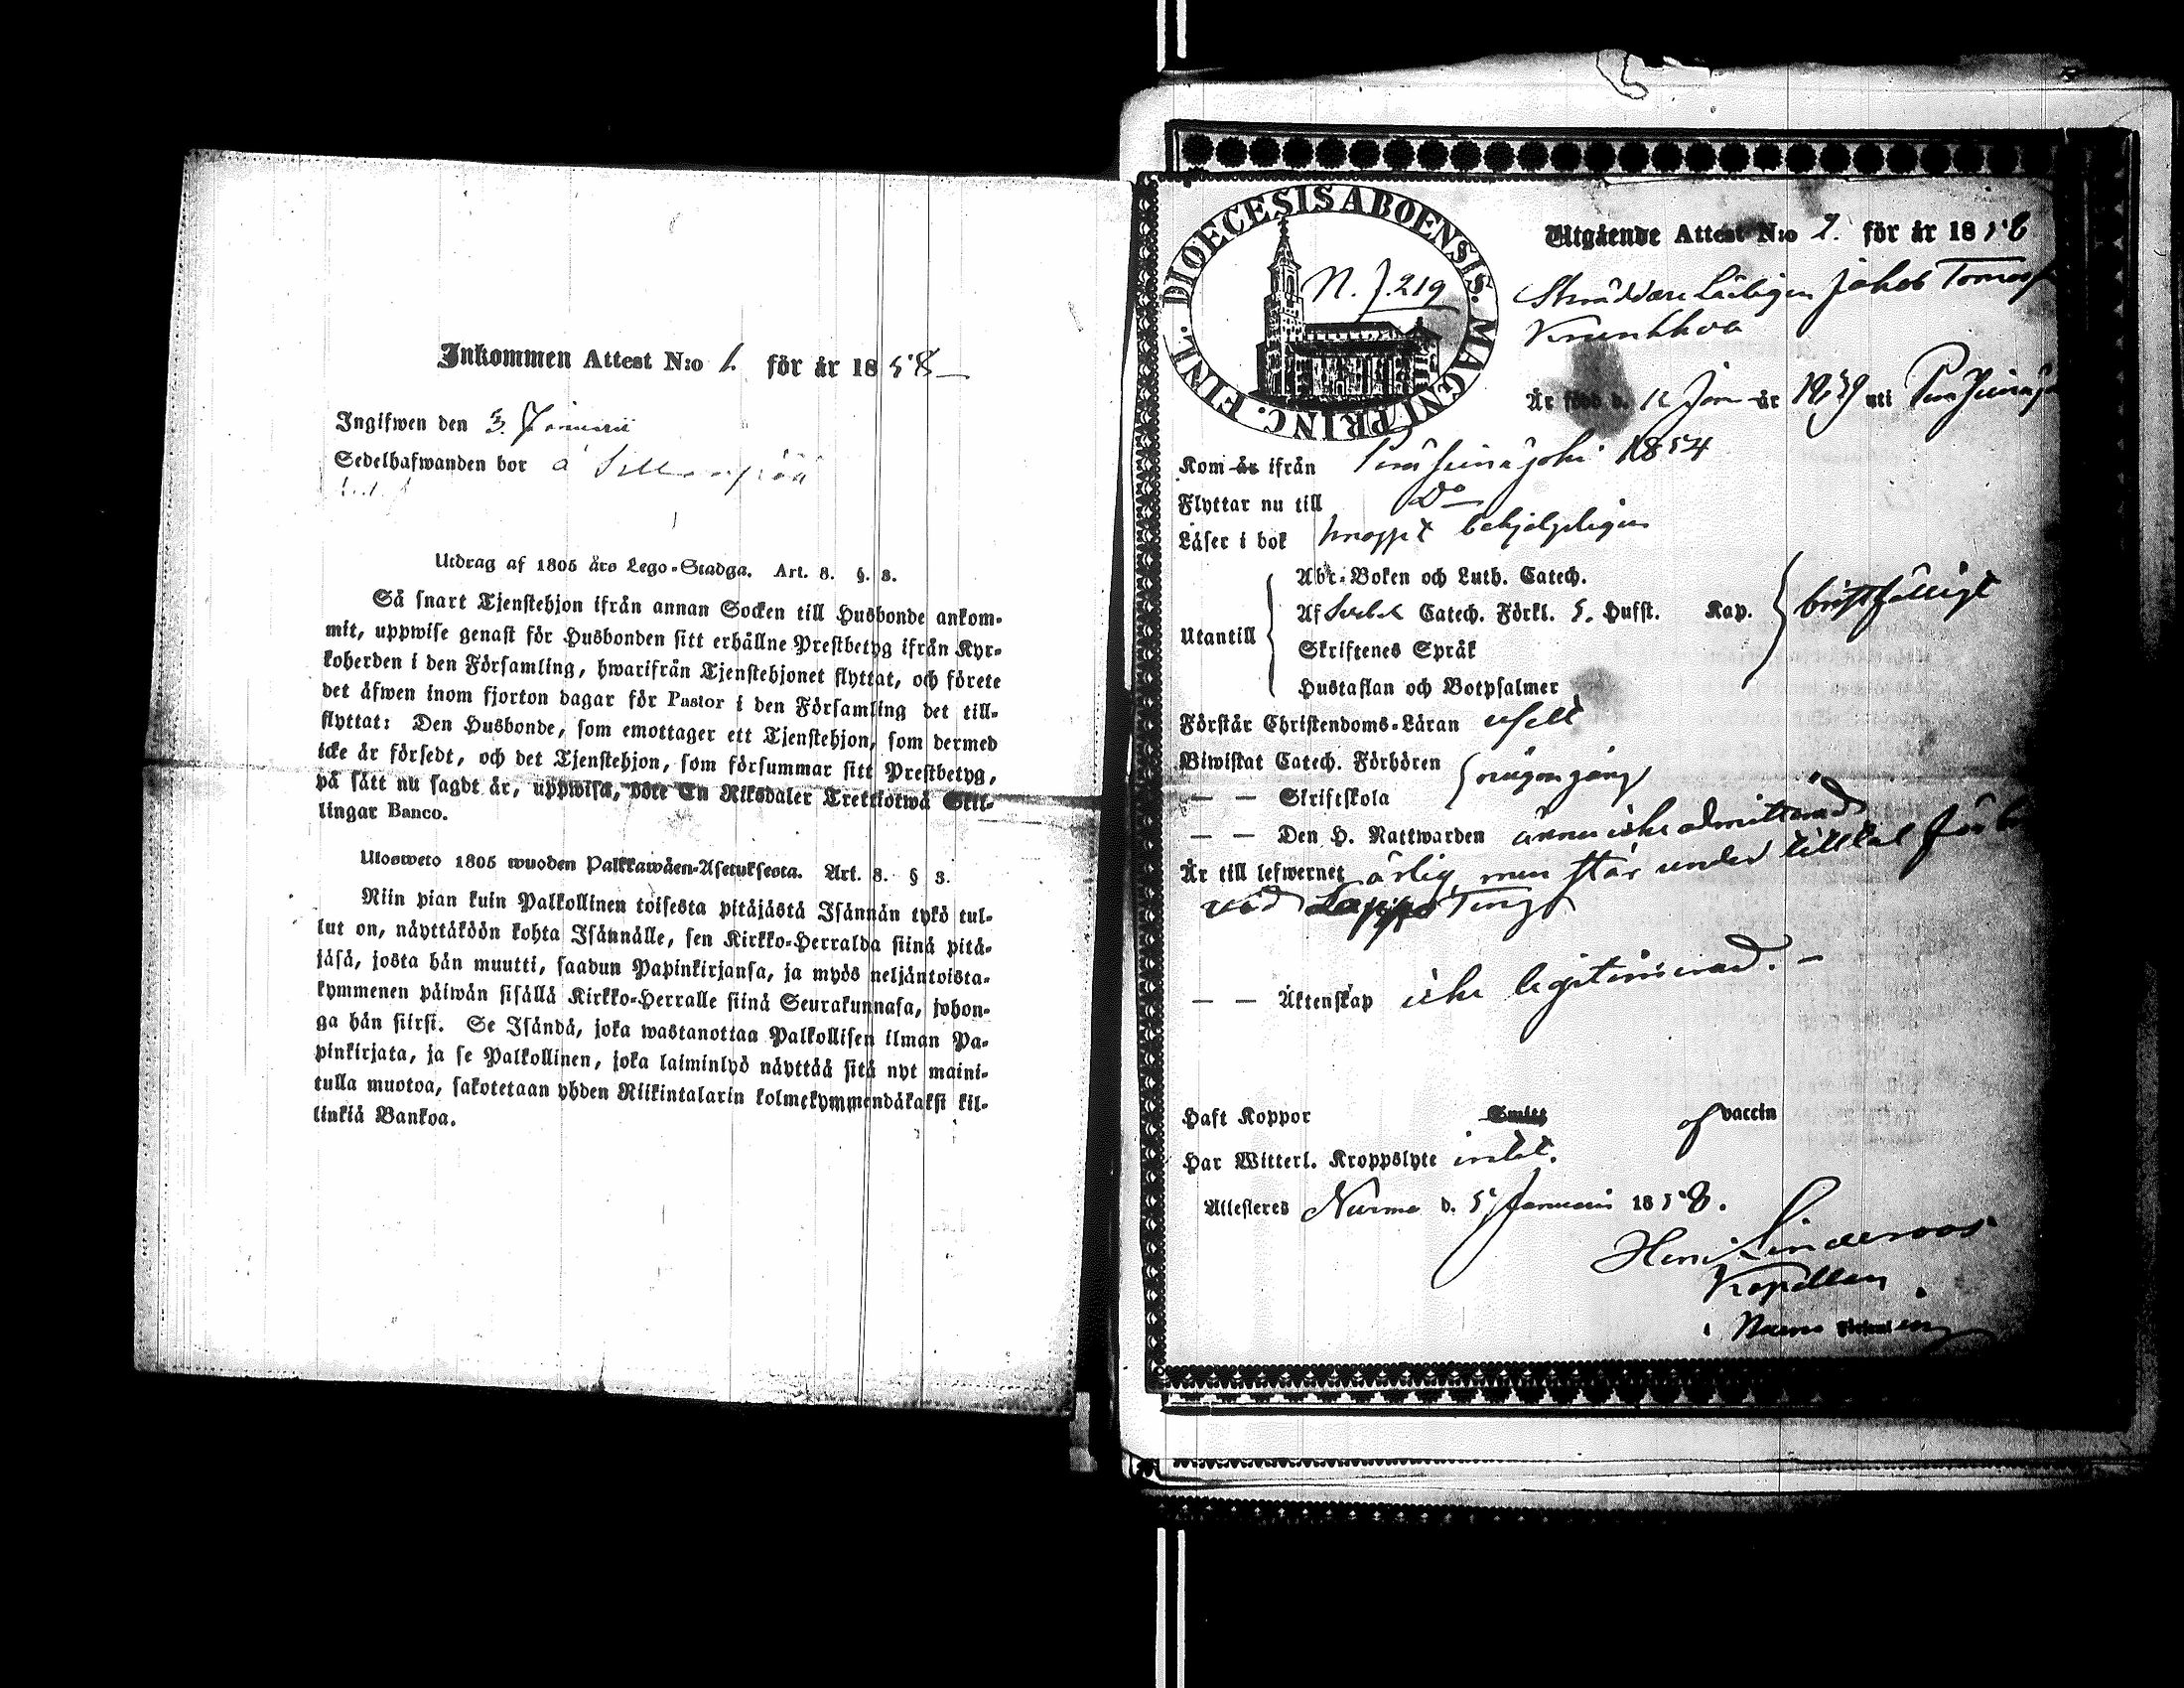 Inkommen Attest N:o 1. för år 1858
Ingifwen den 3. Januari
Sedelhafwanden bor å
Utdrag af 1805 års Lego-Stadga. Art. 8. §. 8.
Så snart Tjenstehjon ifrån annan Socken till Husbonde ankom-
mit, uppwise genast för Husbonden sitt erhållne Prestbetyg ifrån Kyr-
koherden i den Församling, hwarifrån Tjenstehjonet flyttat, och förete
det äfwen inom fjorton dagar för Pastor i den Församling det till-
flyttat: Den Husbonde, som emottager ett Tjenstehjon, som dermed
icke är försedt, och det Tjenstehjon, som försummar sitt Prestbetyg,
på sått nu sagdt är, uppwisa, böte En Riksdaler Trettiotwå Skil-
lingar Banco.
Ulosweto 1805 wuoden Palkkawäen-Asetuksesta. Art. 8. § 8.
Niin pian kuin Palkollinen toisesta pitäjästä Isännän tykö tul-
lut on, näyttäköön kohta Isännälle, sen Kirkko-Herralda siinä pitä-
jäsä, josta hän muutti, saadun Papinkirjansa, ja myös neljäntoista-
kymmenen päiwän sisällä Kirkko-Herralle siinä Seurakunnasa, johon-
ga hän siirsi. Se Isändä, joka wastanottaa Palkollisen ilman Pa-
pinkirjata, ja se Palkollinen, joka laiminlyö näyttää sitä nyt maini-
tulla muotoa, sakotetaan yhden Riikintalarin kolmekymmendäkaksi kil-
linkiä Bankoa.
DIOECESIS ABOENSIS. MAGNI PRINC. FINL.
N. J. 219
Utgående Attest N:o 2. för år 1858
Skräddare Lärlingen Jakob
Är född d. 12 Jan år uti
Kom år ifrån Peräseinäjoki 1854
Flyttar nu till Do
Läser i bok knappt behjelpligen
Utantill
Abc-Boken och Luth. Catech.
Af Catech. Förkl. 5. Hufst. Kap. bristfälligt
Skriftenes Språk
Hustaflan och Botpsalmer
Förstår Christendoms-Läran uselt
Biwistat Catech. Förhören
— — Skriftskola någon gång
— — Den H. Nattwarden ännu icke admitterad
Är till lefwernet ärlig men står under tilltal för
vid Lappo Ting
— — Äktenskap icke legitimerad. —
Haft Koppor Smitt af vaccin
Har Witterl. Kroppslyte intet.
Attesteres Nurmo d. 5 Januari 1858.
Henr Linderoos
Kapellan
i Nurmo